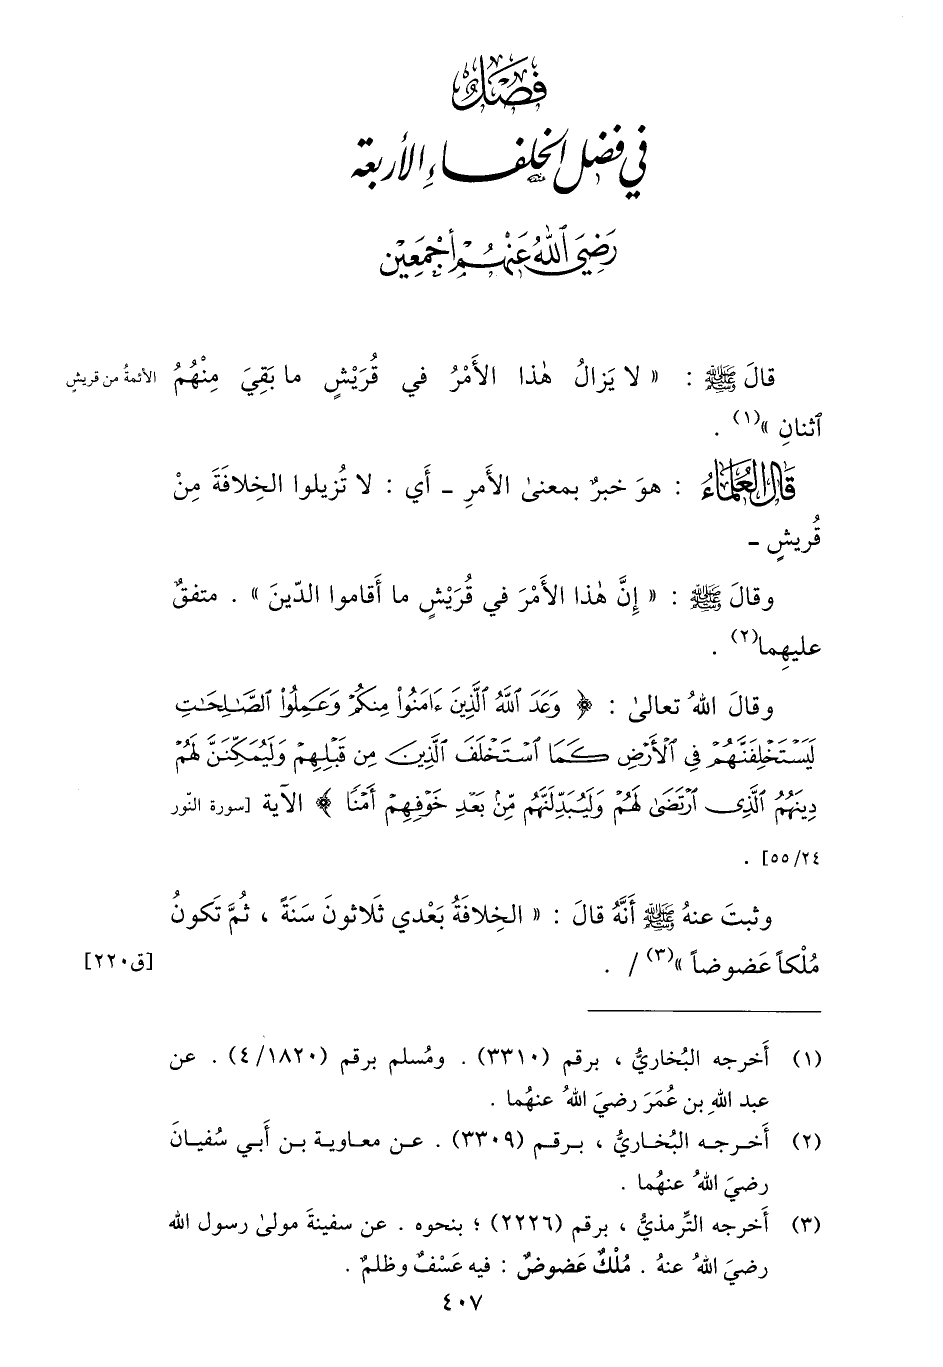 فَصْلٌ
في فضل الخلفاءِ الأربعة
رَضِيَ ٱللهُ عَنْهُمْ أَجْمَعِين
قالَ ﷺ : « لا يَزالُ هٰذا الأَمْرُ في قُرَيْشٍ ما بَقِيَ مِنْهُمُ
الأئمةُ من قريشٍ
ٱثنانِ »(١) .
قَالَ العُلَمَاءُ : هوَ خبرٌ بمعنىٰ الأَمرِ ـ أَي : لا تُزيلوا الخِلافَةَ مِنْ
قُريشٍ ـ
وقالَ ﷺ : « إِنَّ هٰذا الأَمْرَ في قُرَيْشٍ ما أَقاموا الدّينَ » . متفقٌ
عليهِما(٢) .
وقالَ اللهُ تعالىٰ : ﴿ وَعَدَ ٱللَّهُ ٱلَّذِينَ ءَامَنُوا۟ مِنكُمْ وَعَمِلُوا۟ ٱلصَّٰلِحَٰتِ
لَيَسْتَخْلِفَنَّهُمْ فِي ٱلْأَرْضِ كَمَا ٱسْتَخْلَفَ ٱلَّذِينَ مِن قَبْلِهِمْ وَلَيُمَكِّنَنَّ لَهُمْ
دِينَهُمُ ٱلَّذِي ٱرْتَضَىٰ لَهُمْ وَلَيُبَدِّلَنَّهُم مِّنۢ بَعْدِ خَوْفِهِمْ أَمْنًا ﴾ الآية [سورة النّور
٢٤/٥٥] .
وثبتَ عنهُ ﷺ أَنَّهُ قالَ : « الخِلافَةُ بَعْدي ثَلاثونَ سَنَةً ، ثُمَّ تَكونُ
مُلْكاً عَضوضاً »(٣) / .
[ق٢٢٠]
(١) أَخرجه البُخاريُّ ، برقم (٣٣١٠) . ومُسلم برقم (١٨٢٠/٤) . عن
عبد اللهِ بن عُمَرَ رضيَ اللهُ عنهُما .
(٢) أَخرجه البُخاريُّ ، برقم (٣٣٠٩) . عن معاوية بن أَبي سُفيانَ
رضيَ اللهُ عنهُما .
(٣) أَخرجه التِّرمذيُّ ، برقم (٢٢٢٦) ؛ بنحوه . عن سفينةَ مولىٰ رسول الله
رضيَ اللهُ عنهُ . مُلْكٌ عَضوضٌ : فيه عَسْفٌ وظلمٌ .
٤٠٧